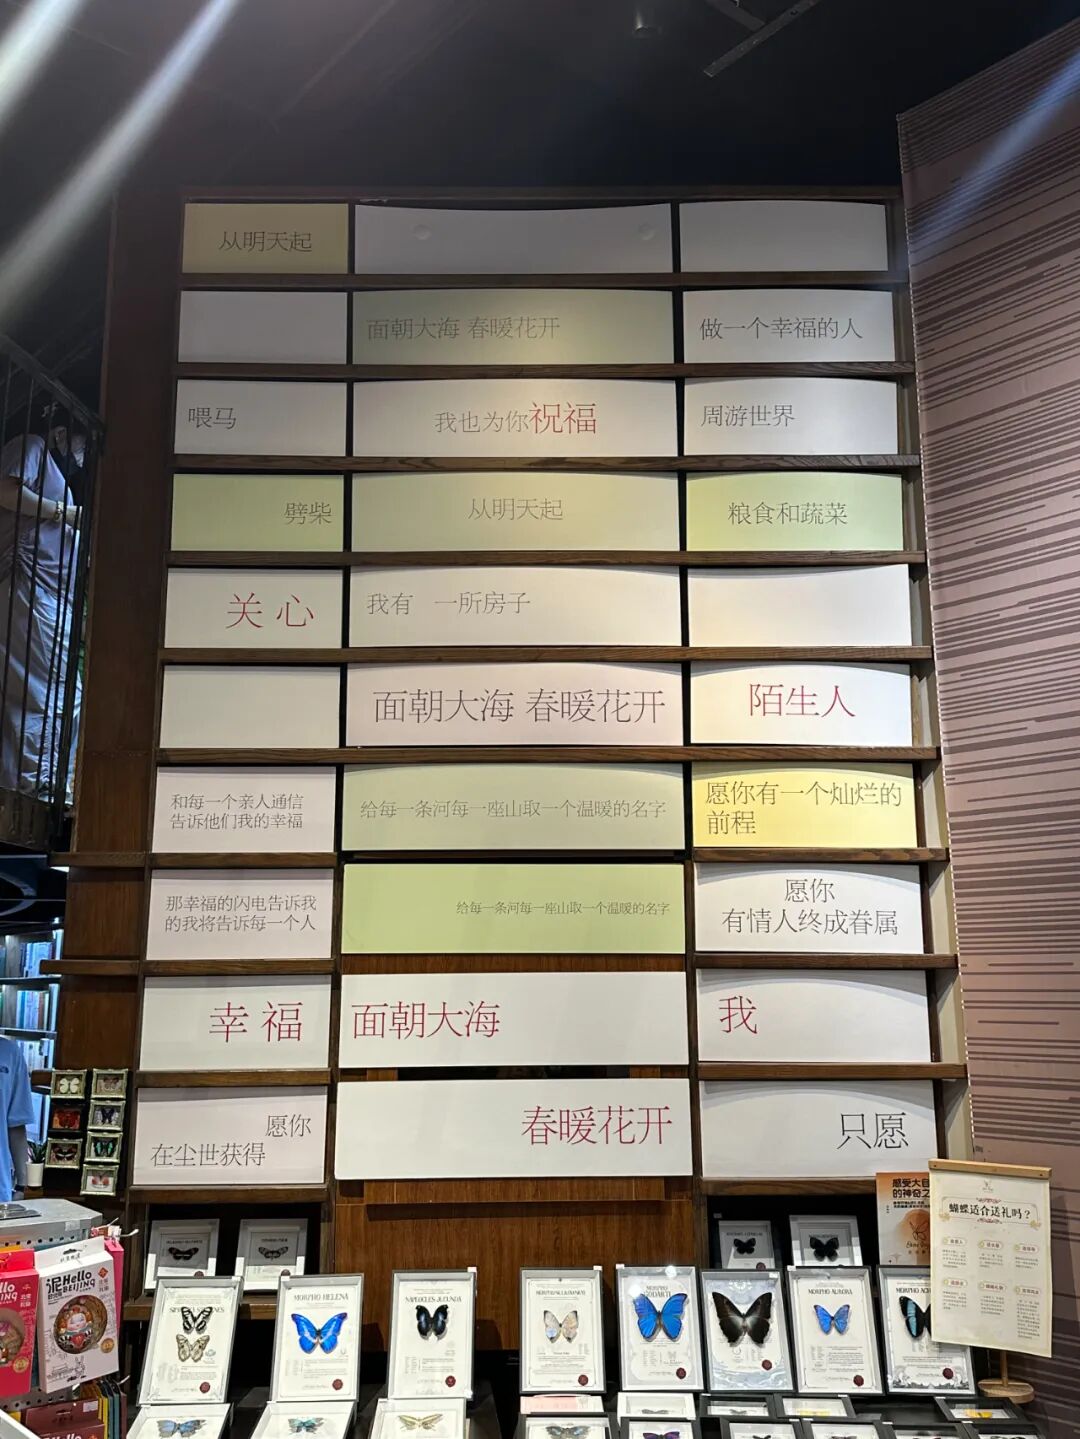 从明天起
面朝大海 春暖花开
做一个幸福的人
喂马
我也为你祝福
周游世界
劈柴
从明天起
粮食和蔬菜
关心
我有 一所房子
面朝大海 春暖花开
陌生人
和每一个亲人通信
告诉他们我的幸福
给每一条河每一座山取一个温暖的名字
愿你有一个灿烂的
前程
那幸福的闪电告诉我
的我将告诉每一个人
给每一条河每一座山取一个温暖的名字
愿你
有情人终成眷属
幸福
面朝大海
我
愿你
在尘世获得
春暖花开
只愿
感受大自
的神奇之
蝴蝶适合送礼吗？
MORPHO HELENA
MORPHO GODARTI
MORPHO AURORA
泥 Hello
BEIJING
Hello